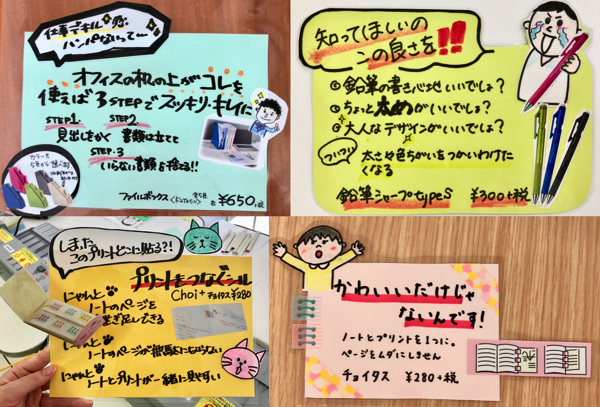 仕事デキル感
ハンパなイって〜
オフィスの机の上がコレを
使えば3STEPでスッキリ・キレイに
STEP1
STEP2
見出しをかく
書類は立てて
STEP.3
いらない書類を捨てる!!
カラーも
5色から選べる
ファイルボックス
全5色
各¥650+税
知ってほしいの
この良さを!!
鉛筆の書き心地いいでしょ?
ちょっと太めがいいでしょ?
大人なデザインがいいでしょ?
ついつい
太さや色ちがいをつかいわけた
くなる
鉛筆シャープtypeS ¥300+税
しまった
このプリントどこに貼る?!
プリントもつなぐシール
Choi+ チョイタス ¥280
にゃんと
ノートのページを
継ぎ足しできる
にゃんと
ノートのページが
にゃんと
ノートとプリントが一緒に見やすい
かわいいだけじゃ
ないんです!
ノートとプリントを1つに。
ページをムダにしません
チョイタス ¥280+税